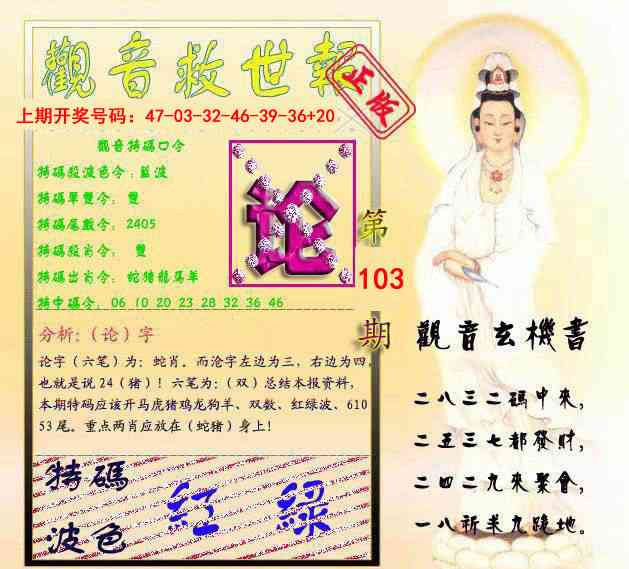 觀音救世報
正版
上期开奖号码：47-03-32-46-39-36+20
觀音特碼口令
特碼殺波色令：藍波
特碼單雙令： 雙
特碼尾數令： 2405
特碼殺肖令： 雙
特碼出肖令： 蛇豬龍馬羊
特中碼令： 06 10 20 23 28 32 36 46
论
第
103
期
分析：（论）字
论字（六笔）为：蛇肖。而沦字左边为三，右边为四，
也就是说24（猪）！六笔为：（双）总结本报资料，
本期特码应该开马虎猪鸡龙狗羊、双数、红绿波、610
53尾。重点两肖应放在（蛇猪）身上！
特碼
波色
紅 綠
觀音玄機書
二八三二碼中來，
二五三七都發財，
二四二九來聚會，
一八祈求九跪地。